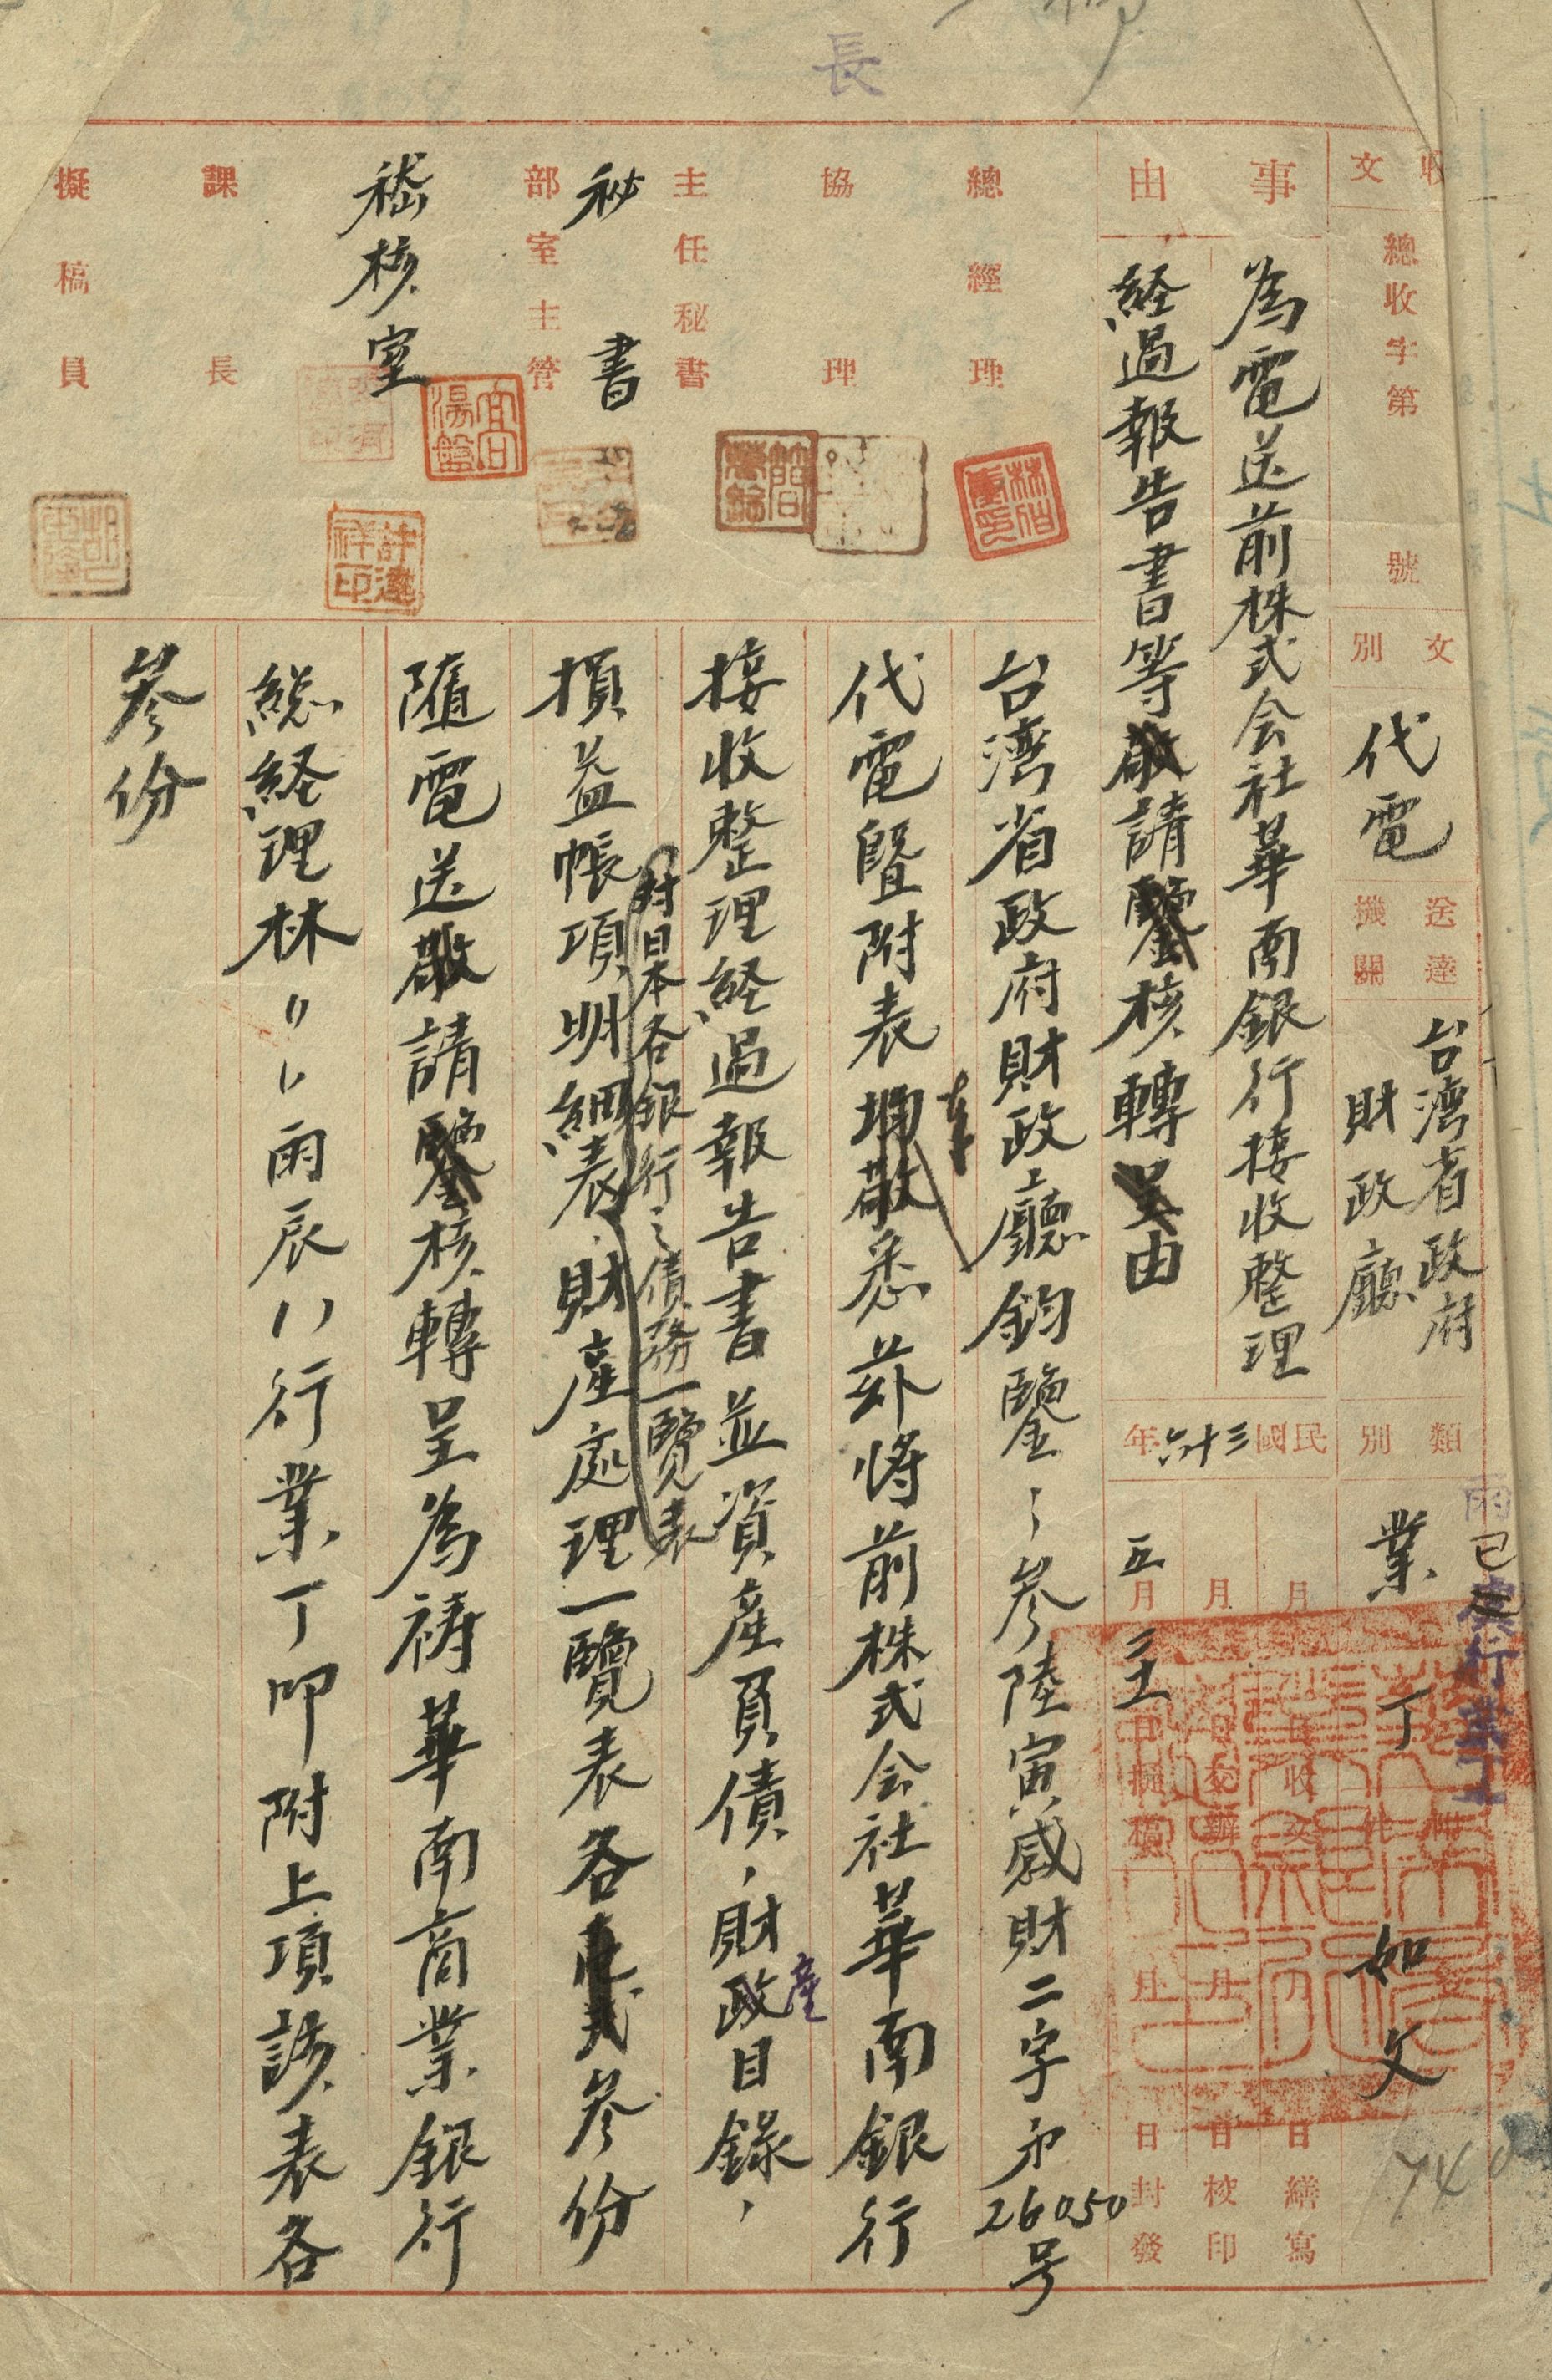 長
收文
總收字第 號
文別
代電
送達機關
台灣省政府
財政廳
類別
業丁
附件
如文
事由
為電送前株式会社華南銀行接收整理
経過報告書等敬請鑒核轉呈由
民國三十六年
月 日收文 月 日繕寫
月 日交辦 月 日校印
五月 日擬稿 月 日封發
總經理
協理
主任秘書
秘書
部室主管
稽核室
課長
擬稿員
台灣省政府財政廳鈞鑒：參陸寅感財二字第26050号
代電暨附表均敬悉茲將前株式会社華南銀行
接收整理経過報告書並資產負債、財政目錄、
產
對日本各銀行之債務一覽表
損益帳項明細表、財產處理一覽表各弍參份
隨電送敬請鑒核轉呈為禱華南商業銀行
総経理林〃〃雨辰八行業丁叩附上項該表各
參份
740